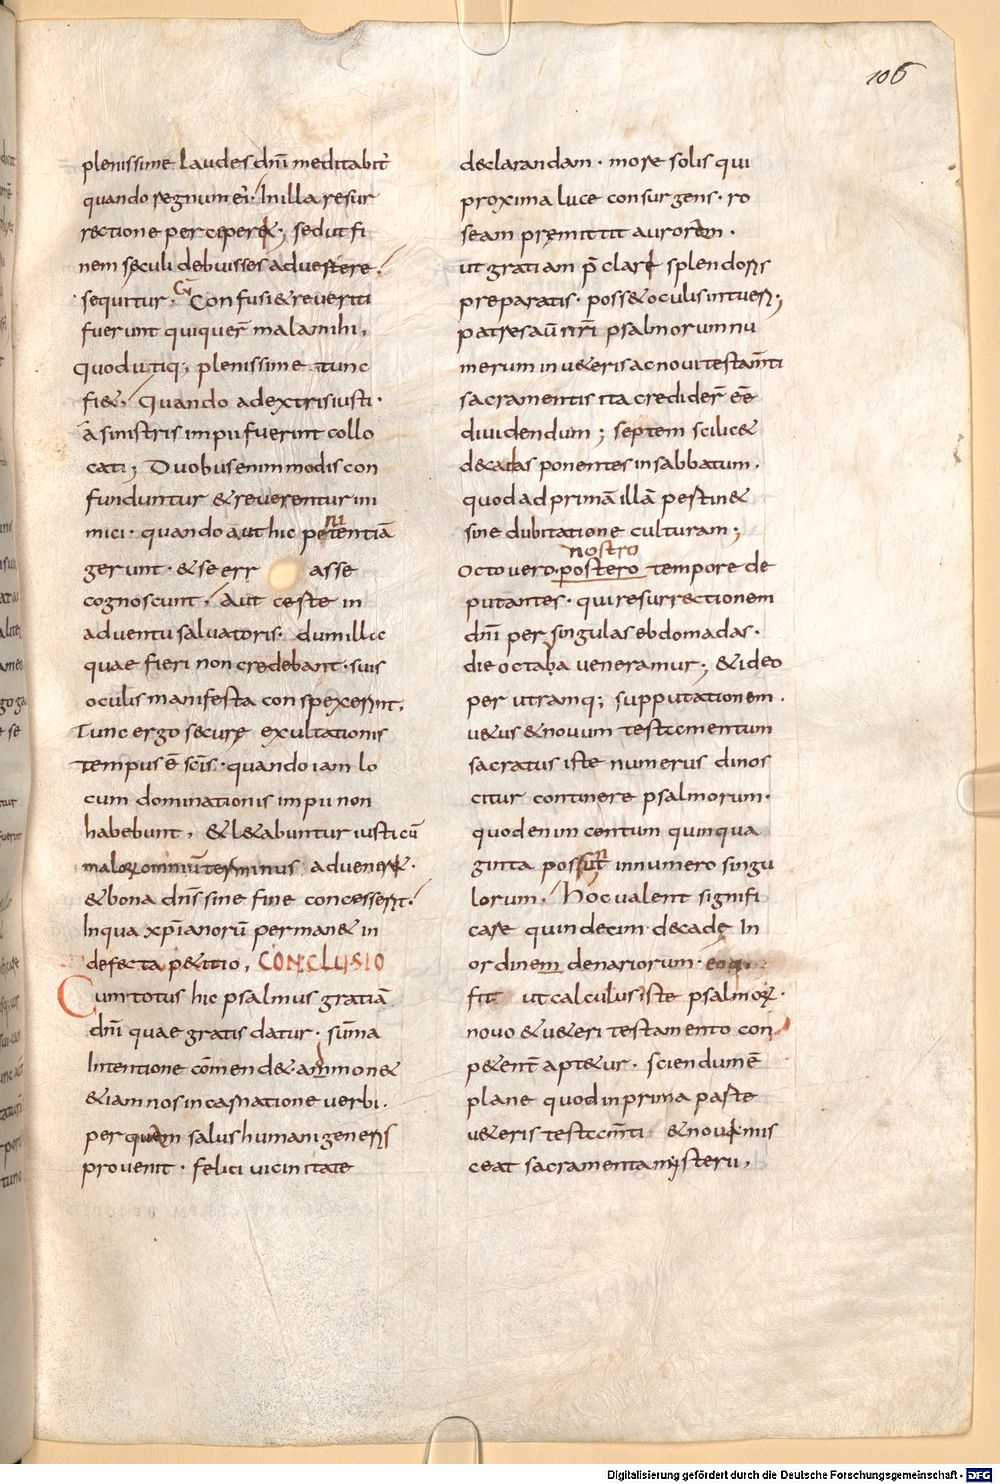 106
plenissime laudes dn̄i meditabit̄
quando regnum ei'· In illa resur
rectione perceper&; sed ut fi
nem seculi debuisses advertere,
sequitur, Con fusi & reveriti
fuerunt qui quer̄ mala mihi,
quod utiq; plenissime tunc
fi&, Quando ad extris iusti·
a sinistris impii fuerint collo
cati; Duobus enim modis con
funduntur & reverentur ini
mici· quando aut hic penitentiā
gerunt· & se err asse
cognoscunt, Aut ceste in
adventu salvatoris· dum illic
quae fieri non credebant· suis
oculis manifesta conspexerint,
Tunc ergo secure exultationis
tempus ē scīs· quando iam lo
cum dominationis impii non
habebunt, & l&abuntur iusti cū
malorum omniū terminus advener&·
& bona dn̄s sine fine concesserit·
In qua xp̄ianorū perman& in
defecta p&itio, CONCLUSIO
Cum totus hic psalmus gratiā
dn̄i quae gratis datur· sūma
Intentione cōmend&· ammone&
&iam nos incarnatione verbi·
per quem salus humani generis
provenit· felici vicinitate
declarandam· more solis qui
proxima luce consurgens· ro
seam premittit aurorem·
ut gratiam p̄ clare splendoris
preparatis· poss& oculis intueri;
patres aū nr̄i psalmorum nu
merum in u&eris ac novi testam̄ti
sacramentis ita credider̄ eē
dividendum; septem scilic&
decadas ponentes in sabbatum,
quod ad primā illā pertin&
sine dubitatione culturam;
nostro
Octo vero postero tempore de
putantes· qui resurrectionem
dn̄i per singulas ebdomadas·
die octaba veneramur; & ideo
per utramq; supputationem·
u&us & novum testamentum
sacratus iste numerus dinos
citur continere psalmorum·
quod enim centum quinqua
ginta possint in numero singu
lorum, Hoc valent signifi
care quindecim decade In
ordinem denariorum· eoq·
fit ut calculus iste psalmorum·
novo & u&eri testamento con
p&ent̄ apt&ur· sciendum ē
plane quod in prima parte
u&eris testam̄ti & novi& mis
ceat sacramenta mysterii,
Digitalisierung gefördert durch die Deutsche Forschungsgemeinschaft - DFG